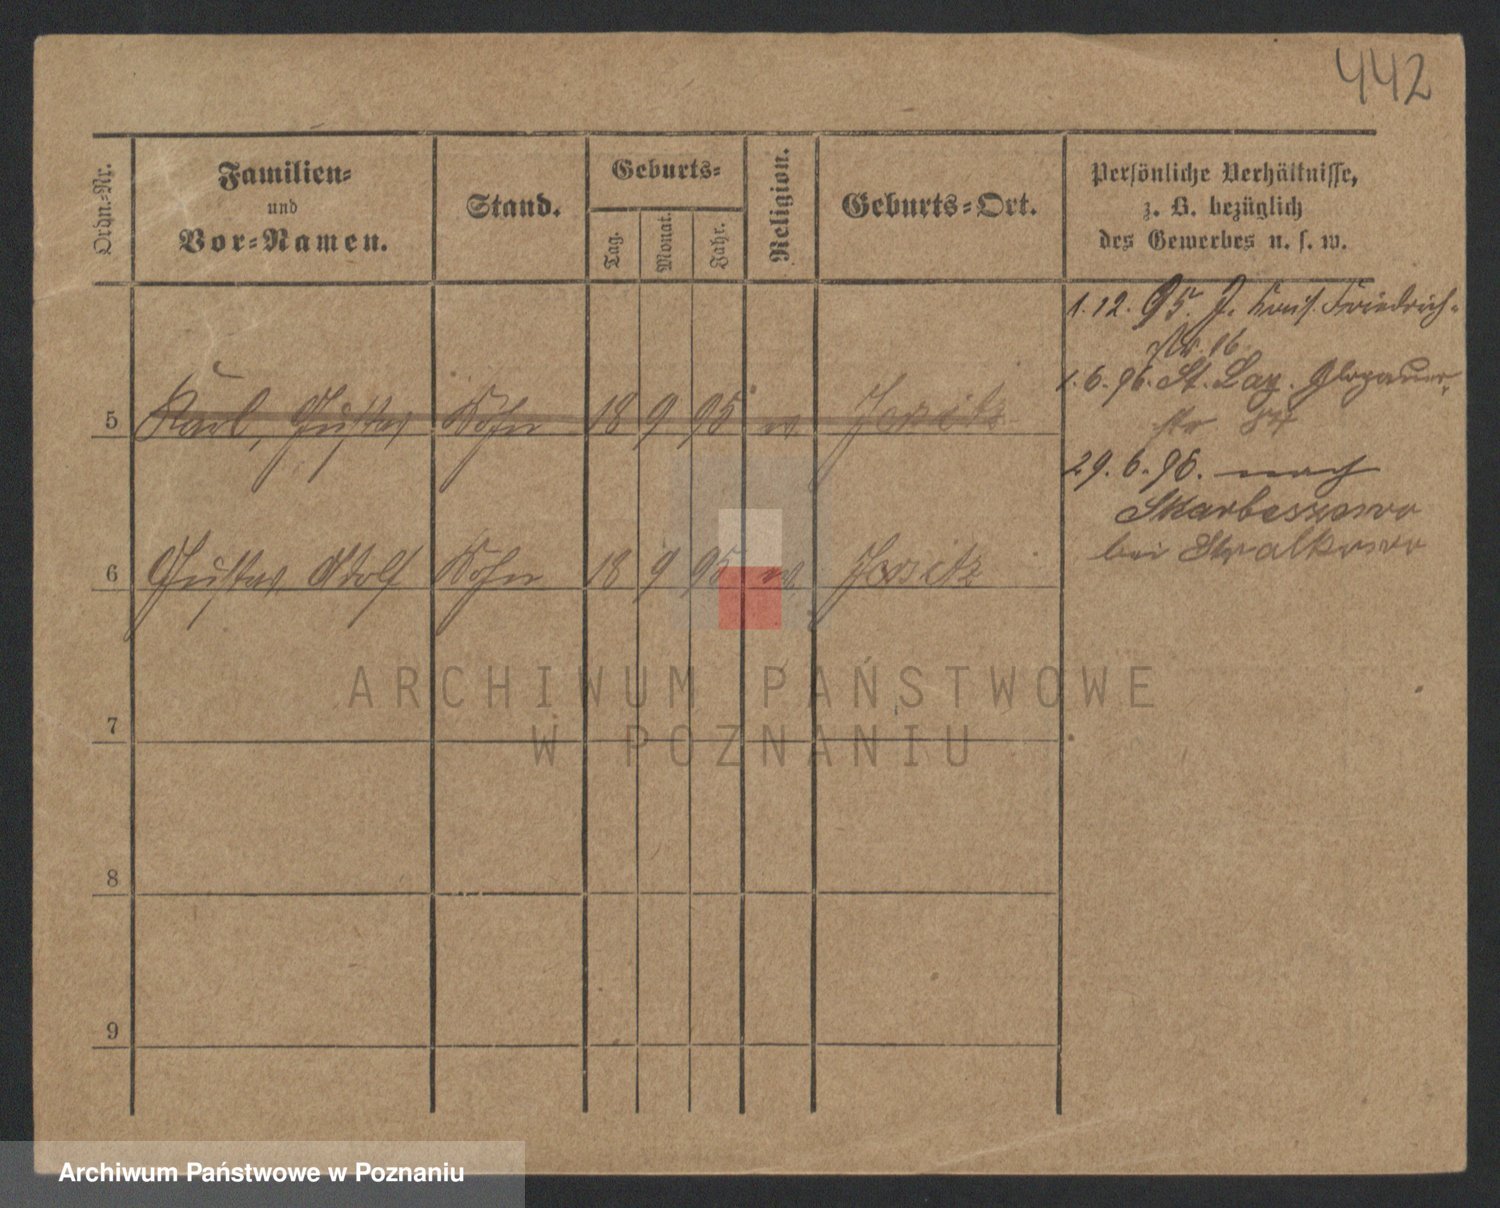 442
Ordn.-Nr.
Familien-
und
Vor-Namen.
Stand.
Geburts-
Tag.
Monat.
Jahr.
Religion.
Geburts-Ort.
Persönliche Verhältnisse,
z. B. bezüglich
des Gewerbes u. s. w.
1. 12. 95. J. Friedrich-
str. 16.
1. 6. 96. St. Laz. Glogauer-
str 84
5 Karl, Gustav Sohn 18 9 95 Jersitz
29. 6. 96. nach
Skarbeszewo
bei Stralkowo
6 Gustav Adolf Sohn 18 9 95 Jersitz
ARCHIWUM PAŃSTWOWE
W POZNANIU
7
8
9
Archiwum Państwowe w Poznaniu